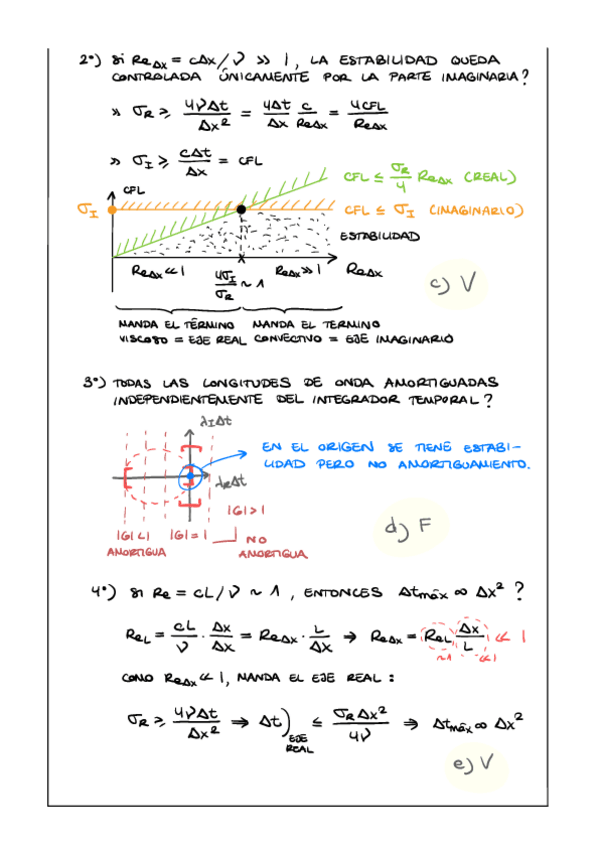 2º) SI Re_Δx = cΔx/ν >> 1, LA ESTABILIDAD QUEDA
CONTROLADA ÚNICAMENTE POR LA PARTE IMAGINARIA?
» σ_R ≥ 4νΔt/Δx² = 4Δt/Δx c/Re_Δx = 4CFL/Re_Δx
» σ_I ≥ cΔt/Δx = CFL
CFL ≤ σ_R/4 Re_Δx (REAL)
CFL
σ_I
CFL ≤ σ_I (IMAGINARIO)
ESTABILIDAD
Re_Δx << 1
4σ_I/σ_R ~ 1
Re_Δx >> 1
Re_Δx
c) V
MANDA EL TÉRMINO
VISCOSO = EJE REAL
MANDA EL TERMINO
CONVECTIVO = EJE IMAGINARIO
3º) TODAS LAS LONGITUDES DE ONDA AMORTIGUADAS
INDEPENDIENTEMENTE DEL INTEGRADOR TEMPORAL?
λ_IΔt
EN EL ORIGEN SE TIENE ESTABI-
LIDAD PERO NO AMORTIGUAMIENTO.
λ_RΔt
|G|>1
|G|<1
AMORTIGUA
|G|=1
NO
AMORTIGUA
d) F
4º) SI Re = cL/ν ~ 1, ENTONCES Δt_máx ∝ Δx² ?
Re_L = cL/ν · Δx/Δx = Re_Δx · L/Δx → Re_Δx = Re_L Δx/L << 1
~1
<<1
COMO Re_Δx << 1, MANDA EL EJE REAL :
σ_R ≥ 4νΔt/Δx² ⇒ Δt)_EJE REAL ≤ σ_RΔx²/4ν ⇒ Δt_máx ∝ Δx²
e) V